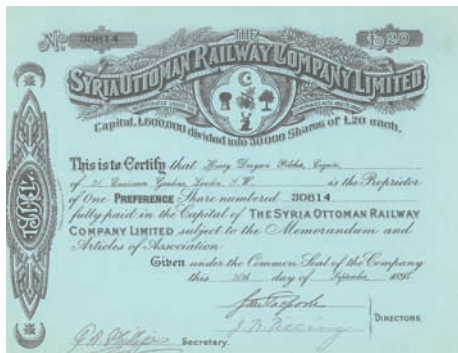 THE
No 30814 £20
SYRIA OTTOMAN RAILWAY COMPANY LIMITED
INCORPORATED UNDER THE COMPANIES ACTS
Capital, £600,000 divided into 30000 Shares of £20 each.
This is to Certify that Henry
of Gardens, London, S.W. is the Proprietor
of One PREFERENCE Share numbered 30814
fully paid in the Capital of THE SYRIA OTTOMAN RAILWAY
COMPANY LIMITED subject to the Memorandum and
Articles of Association
Given under the Common Seal of the Company
this day of September
DIRECTORS
Secretary.